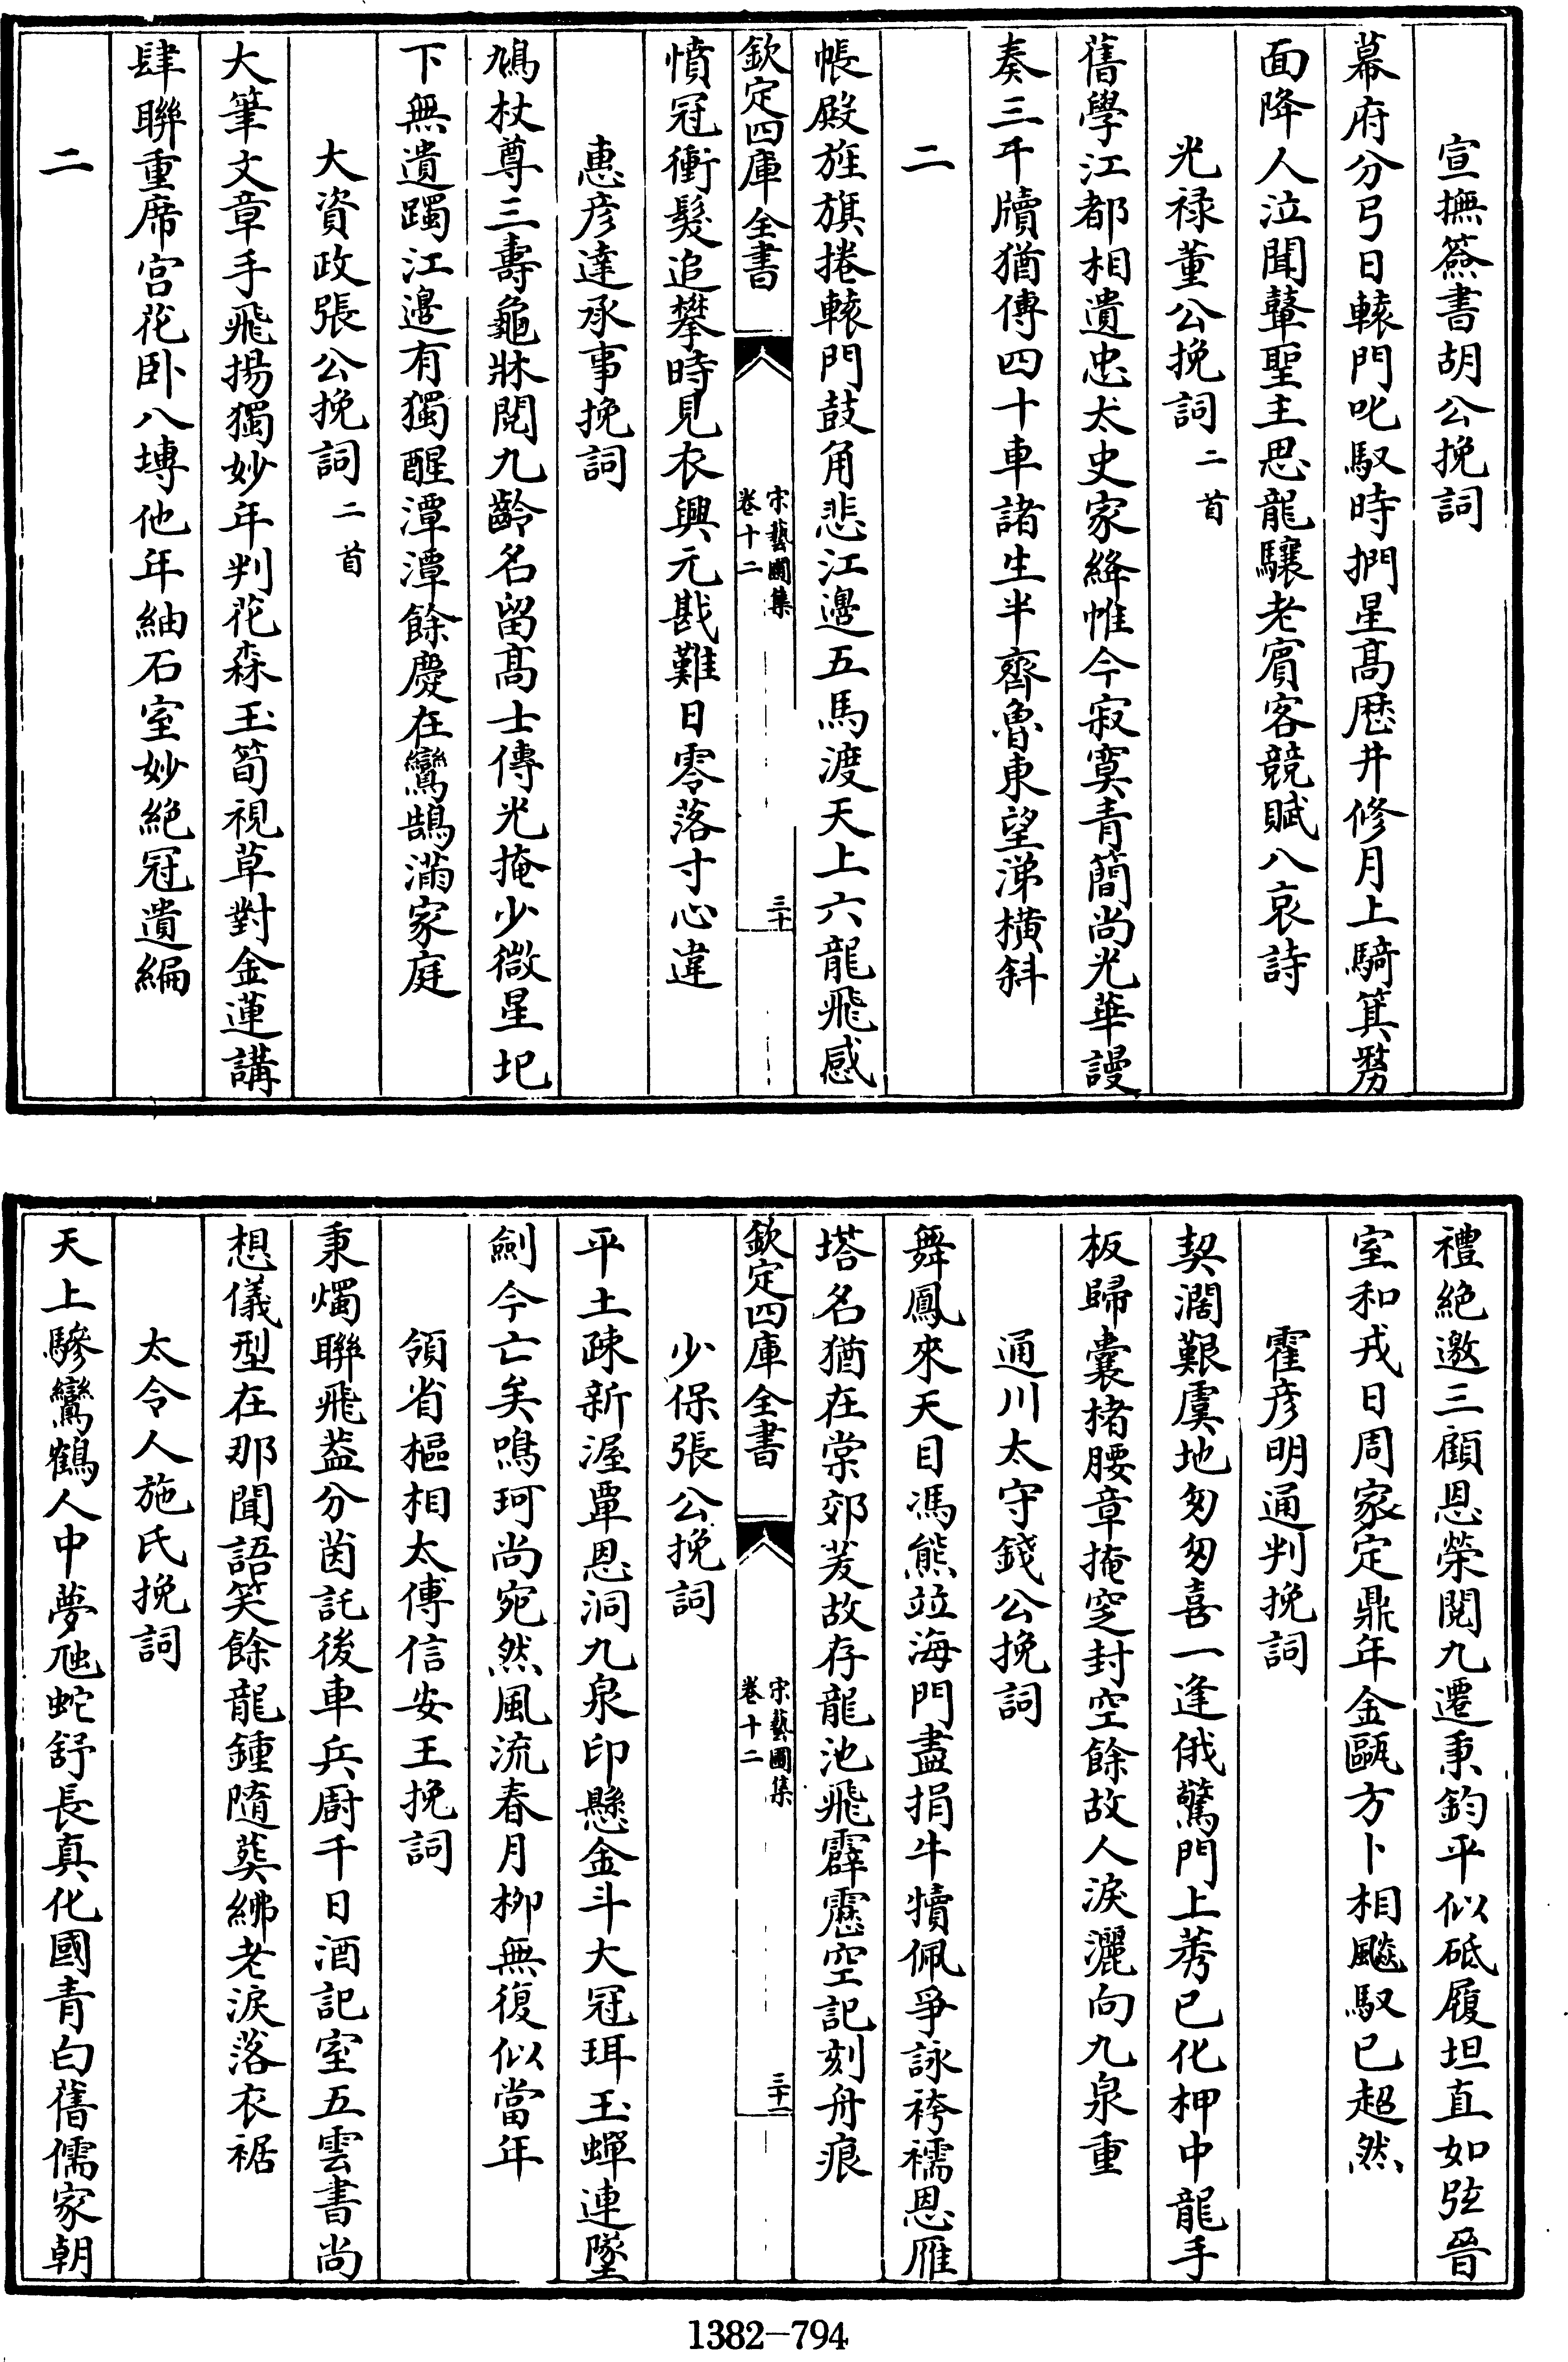 宣撫簽書胡公挽詞
幕府分弓日轅門叱馭時捫星髙歴井修月上騎箕剺
面降人泣聞鼙聖主思龍驤老賓客競賦八哀詩
光禄董公挽詞二首
舊學江都相遺忠太史家絳帷今寂寞青簡尚光華謾
奏三千牘猶傳四十車諸生半齊魯東望涕橫斜
二
帳殿旌旗捲轅門鼓角悲江邊五馬渡天上六龍飛感
欽定四庫全書
宋藝圃集
卷十二
三十
憤冠衝髮追攀時見衣興元戡難日零落寸心違
惠彦達承事挽詞
鳩杖尊三壽龜牀閱九齡名留髙士傳光掩少微星圯
下無遺躅江邊有獨醒潭潭餘慶在鸞鵠滿家庭
大資政張公挽詞二首
大筆文章手飛揚獨妙年判花森玉筍視草對金蓮講
肆聯重席宫花卧八塼他年紬石室妙絶冠遺編
二
禮絶邀三顧恩榮閱九遷秉鈞平似砥履坦直如弦晉
室和戎日周家定鼎年金甌方卜相飈馭已超然
霍彦明通判挽詞
契濶艱虞地匆匆喜一逢俄驚門上莠已化柙中龍手
板歸囊楮腰章掩窆封空餘故人淚灑向九泉重
通川太守錢公挽詞
舞鳳來天目馮熊竝海門盡捐牛犢佩爭詠袴襦恩雁
塔名猶在棠郊茇故存龍池飛霹靂空記刻舟痕
欽定四庫全書
宋藝圃集
卷十二
三十一
少保張公挽詞
平土疎新渥覃恩洞九泉印懸金斗大冠珥玉蟬連墜
劍今亡矣鳴珂尚宛然風流春月柳無復似當年
領省樞相太傅信安王挽詞
秉燭聯飛葢分茵託後車兵厨千日酒記室五雲書尚
想儀型在那聞語笑餘龍鍾隨葬紼老淚落衣裾
太令人施氏挽詞
天上驂鸞鶴人中夢虺蛇舒長真化國青白舊儒家朝
1382-794